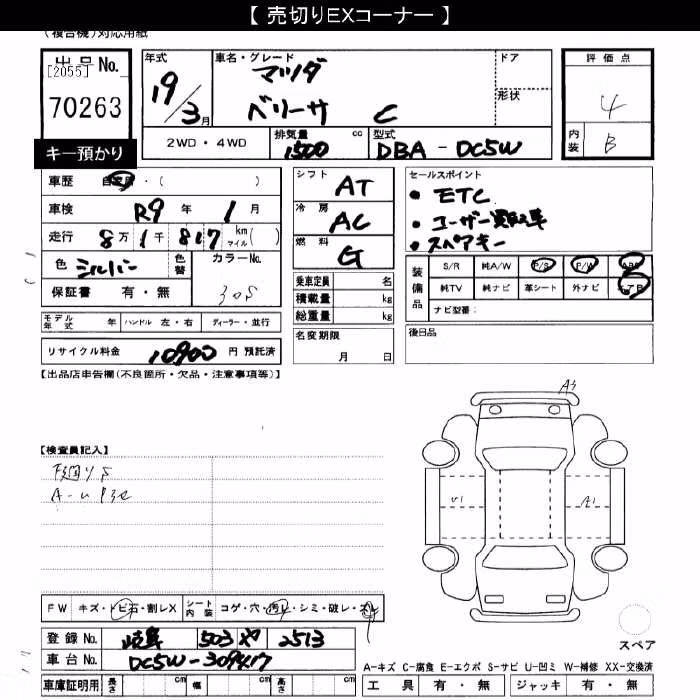 【 売切りEXコーナー 】
(複合機)対応用紙
出品 No.
[2055]
70263
キー預かり
年式 19/3月
車名・グレード マツダ
ベリーサ C
ドア
形状
2WD・4WD
排気量 1500 cc
型式 DBA-DC5W
評価点
4
内装 B
車歴 自家用・( )
車検 R9年 1月
走行 8万1千817 km マイル( )
色 シルバー 色替 カラーNo.
保証書 有・無 30S
モデル年式 年 ハンドル 左・右 ディーラー・並行
リサイクル料金 10900 円 預託済
シフト AT
冷房 AC
燃料 G
乗車定員 名
積載量 kg
総重量 kg
名変期限
月 日
セールスポイント
・ETC
・ユーザー買取車
・スペアキー
装備品 S/R 純A/W P/S P/W ABS
純TV 純ナビ 革シート 外ナビ エアB
ナビ型番：
後日品
【出品店申告欄(不良箇所・欠品・注意事項等)】
【検査員記入】
下廻りS
A-U
A3
U1
A1
FW キズ・トビ石・割レX シート内装 コゲ・穴・汚レ・シミ・破レ・スレ
登録 No. 岐阜 503 や 2513
車台 No. DC5W-309417
車庫証明用 長さ cm 幅 cm 高さ cm
スペア
A-キズ C-腐食 E-エクボ S-サビ U-凹ミ W-補修 XX-交換済
工具 有・無 ジャッキ 有・無